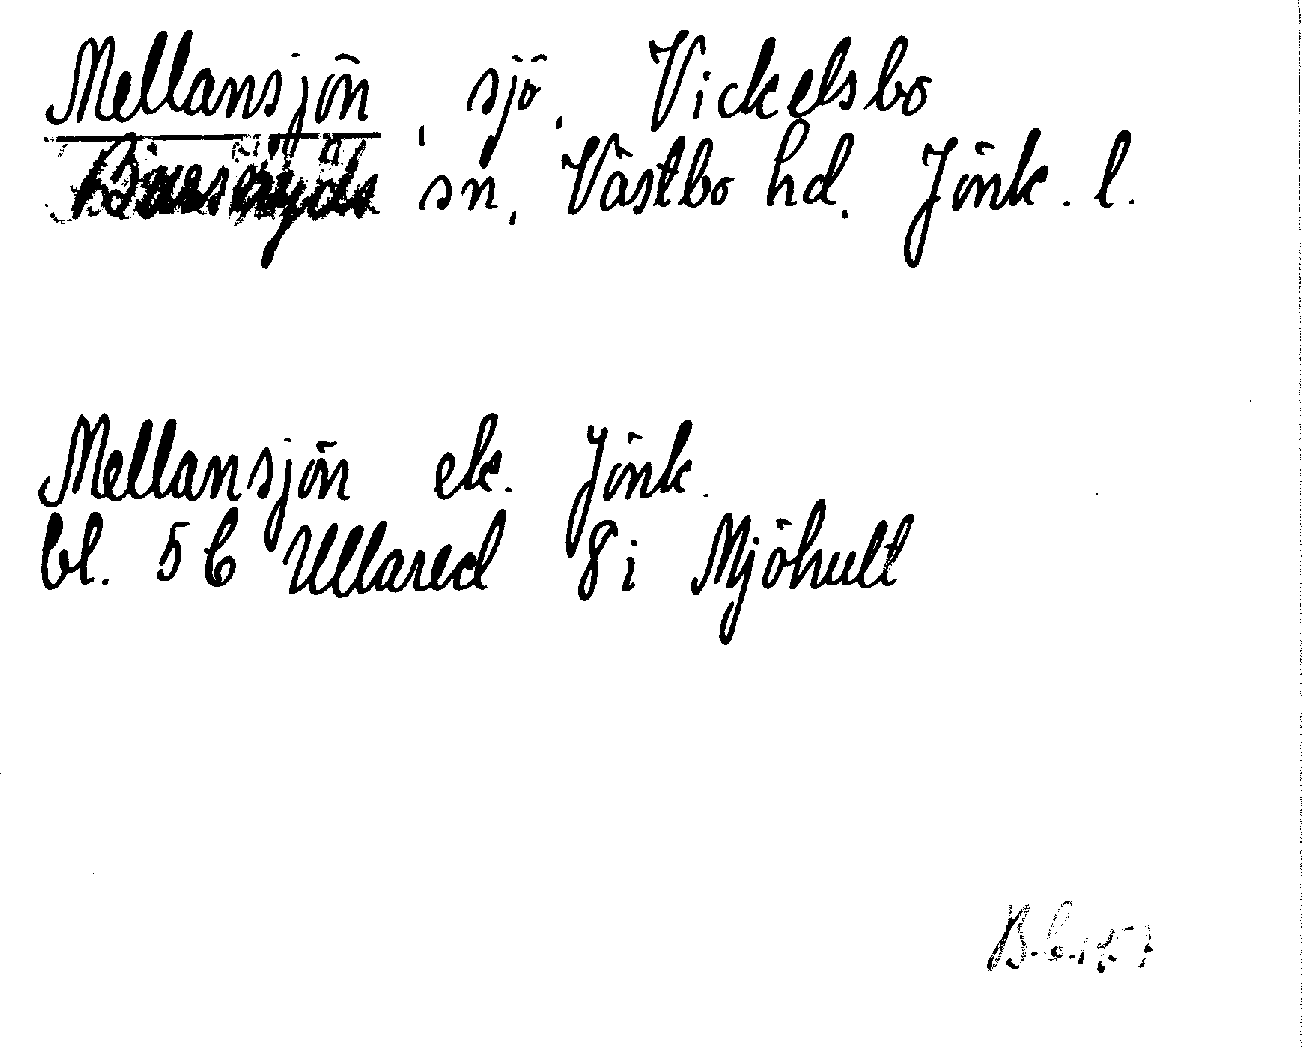 Mellansjön, sjö. Vickelsbo
sn, Västbo hd. Jönk. l.
Mellansjön ek. Jönk.
bl. 5 C Ullared 8i Mjöhult